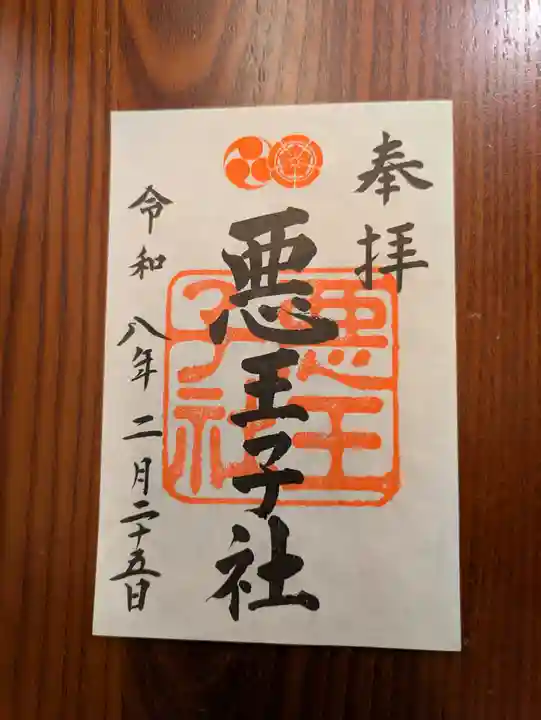 奉拝
悪王子社
悪王
子社
令和八年二月二十五日